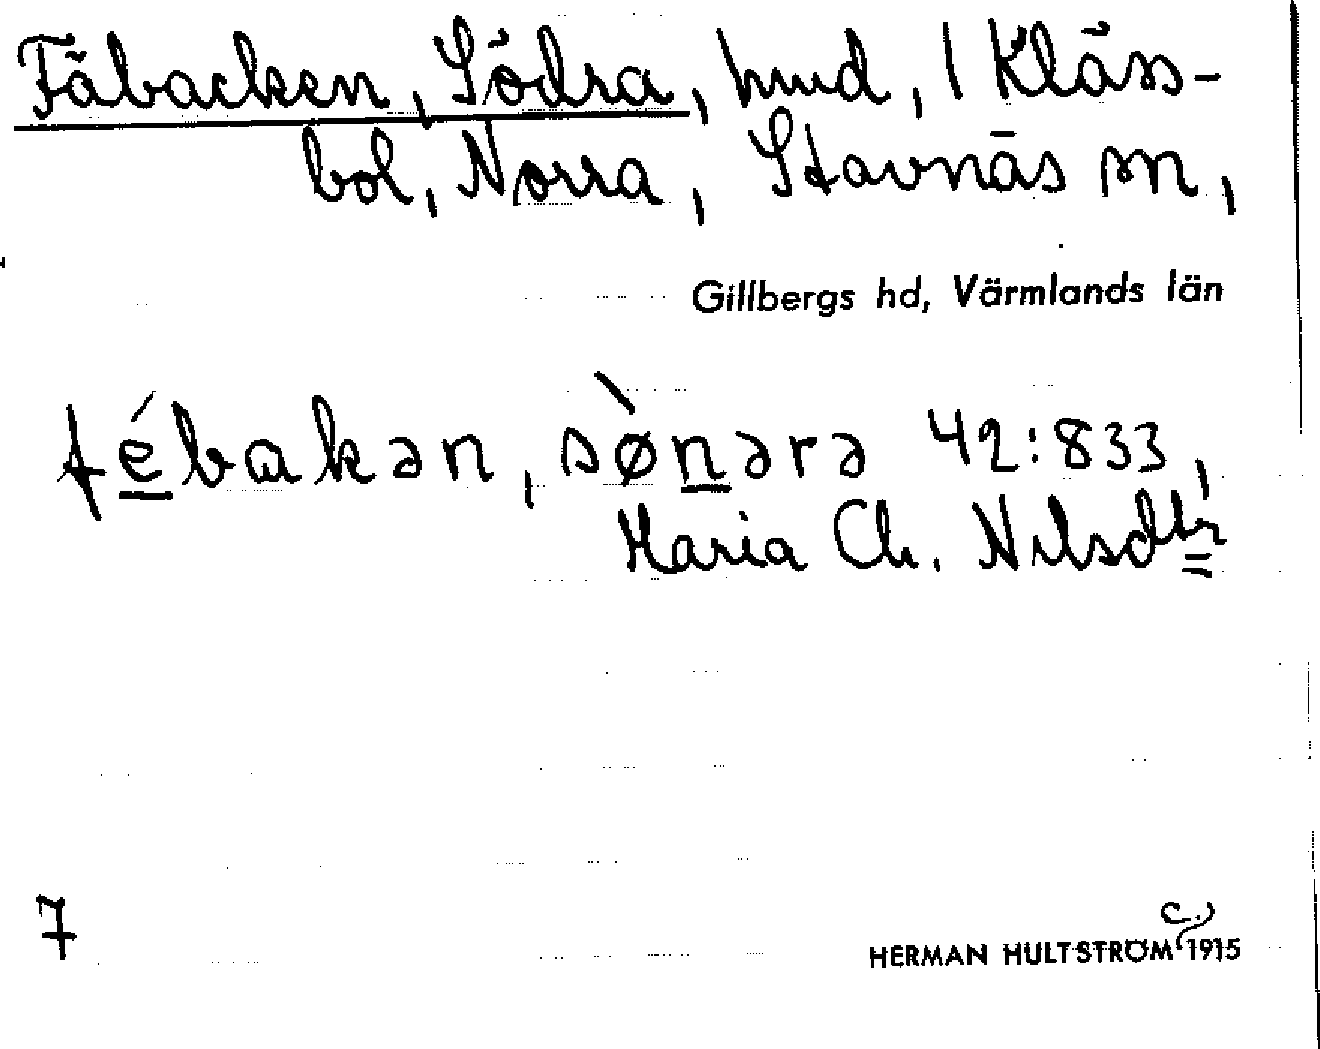 Fäbacken, Södra, hmd, i Kläss-
bol, Norra, Stavnäs sn,
Gillbergs hd, Värmlands län
fé̲bakən, sø̀n̲ərə 42:833,
Maria Ch. Nilsdtr
7
HERMAN HULTSTRÖM c. 1915